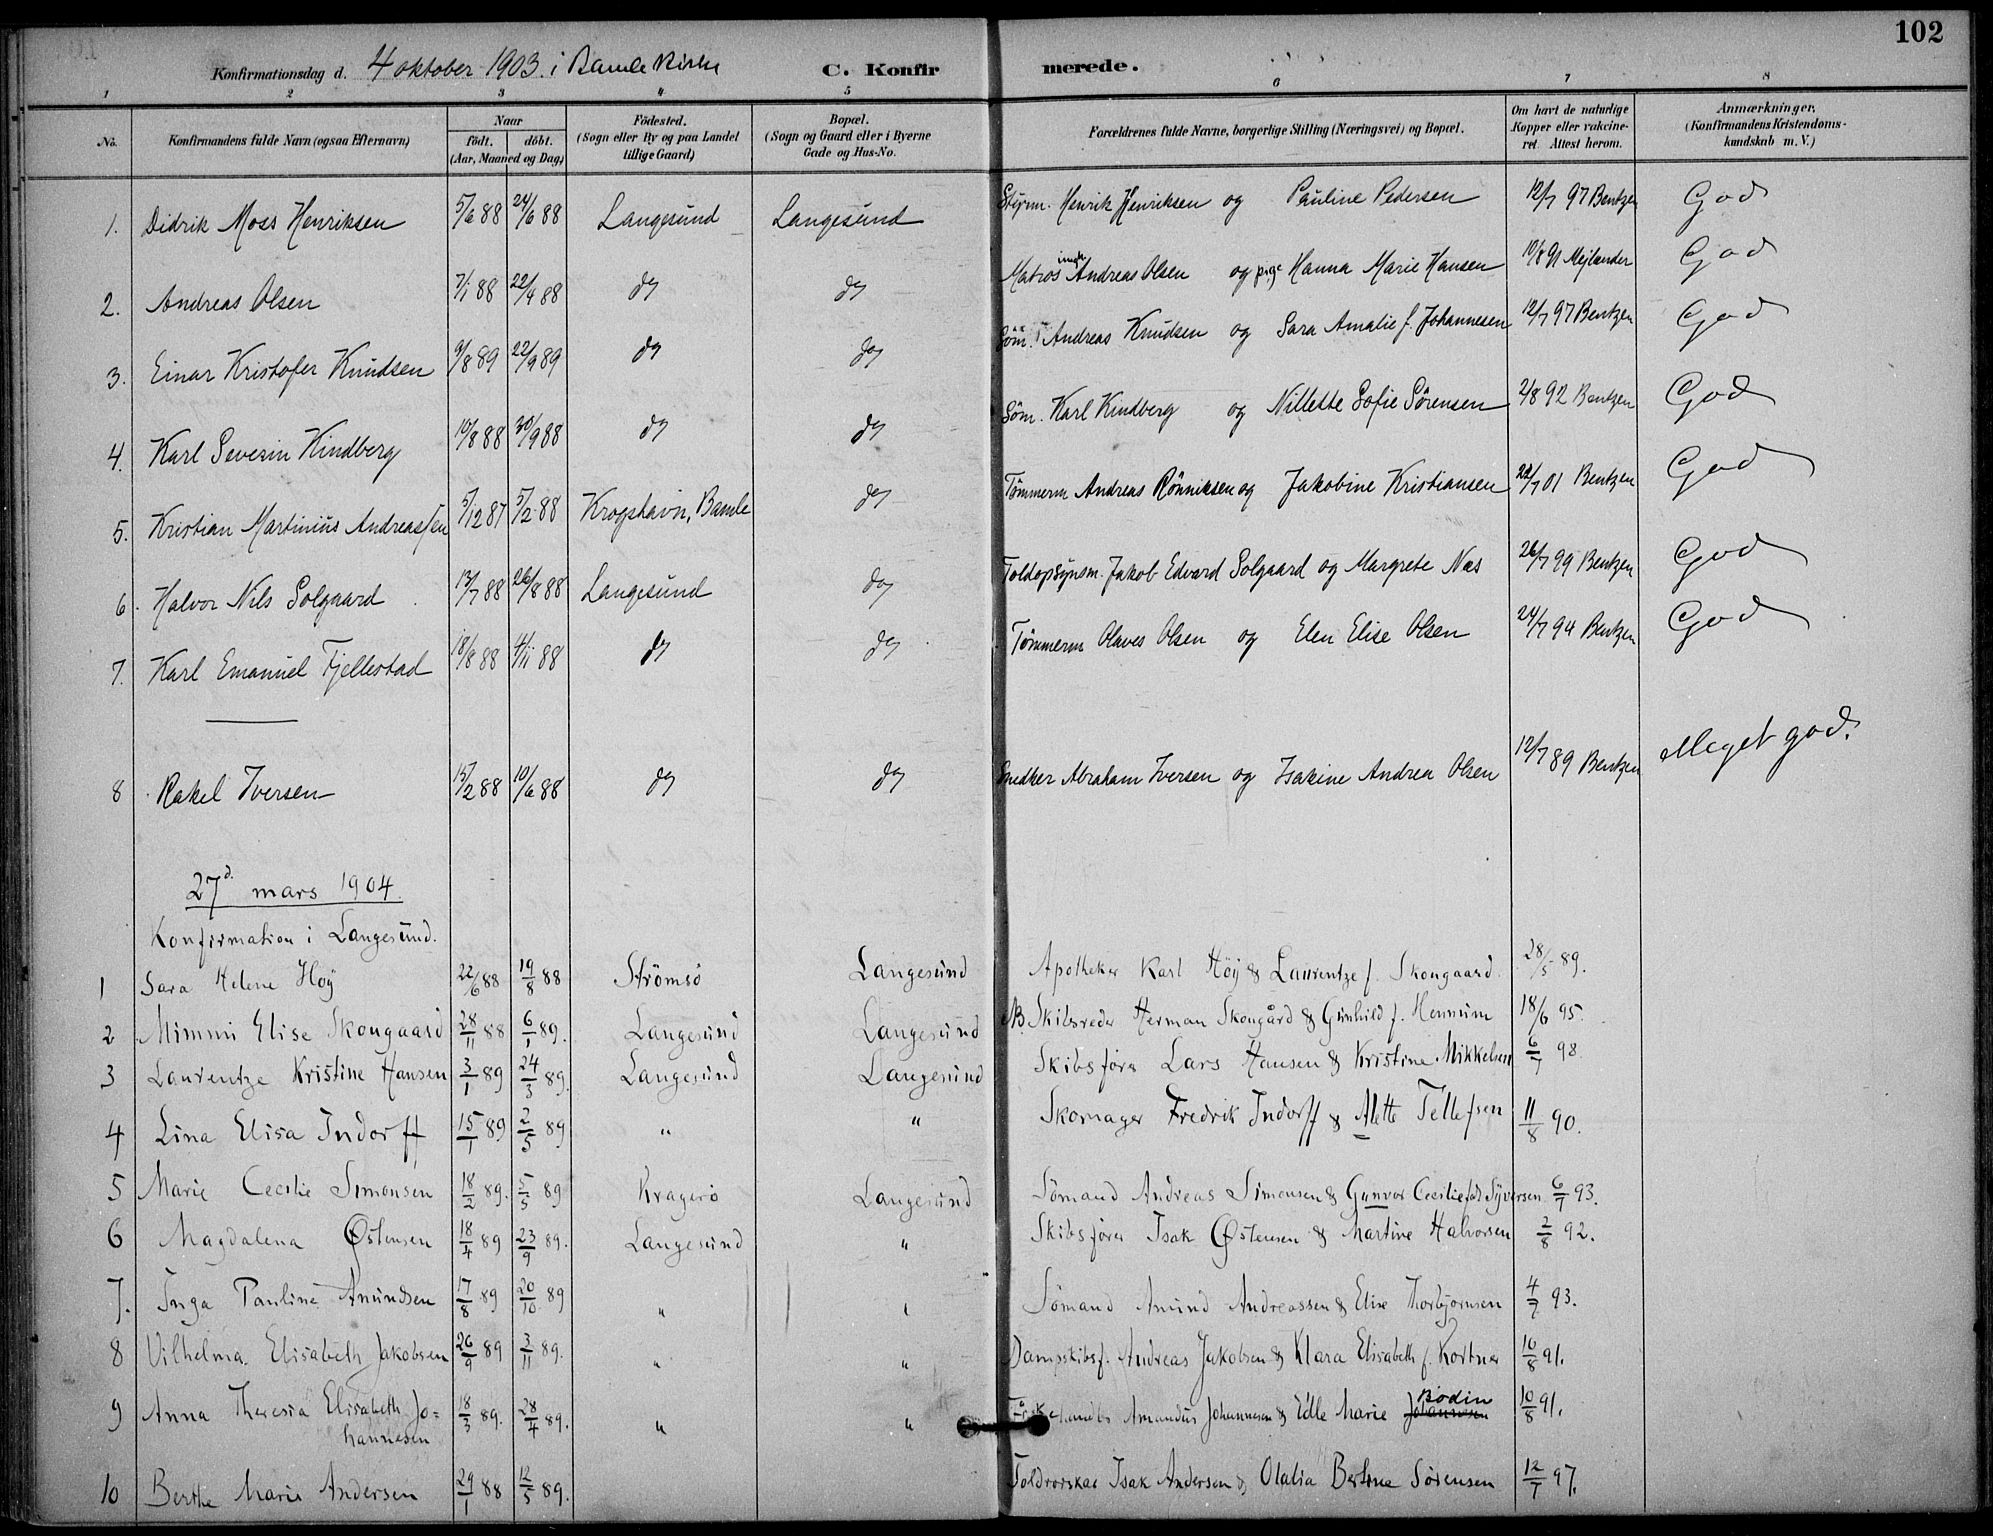 102
Konfirmationsdag d. 4 oktober 1903. i Bamle Kirke C. Konfirmerede.
1 2 3 4 5 6 7 8
No. Konfirmandens fulde Navn (ogsaa Efternavn) Naar födt. döbt. (Aar, Maaned og Dag) Födested. (Sogn eller By og paa Landet tillige Gaard) Bopæl. (Sogn og Gaard eller i Byerne Gade og Hus-No. Forældrenes fulde Navne, borgerlige Stilling (Næringsvei) og Bopæl. Om havt de naturlige Kopper eller vakcineret. Attest herom. Anmærkninger. (Konfirmandens Kristendomskundskab m. V.)
1. Didrik Moss Henriksen 5/6 88 24/6 88 Langesund Langesund Styrm. Henrik Henriksen og Pauline Pedersen 12/7 97 Bentzen God
2. Andreas Olsen 7/1 88 22/4 88 do do Matros ungk Andreas Olsen og pige Hanna Marie Hansen 10/8 91 Mejlænder God
3. Einar Kristofer Knudsen 9/8 89 22/9 89 do do Söm. Andreas Knudsen og Sara Amalie f. Johannesen 12/7 97 Bentzen God
4. Karl Severin Kindberg 10/8 88 30/9 88 do do Söm. Karl Kindberg og Nillette Sofie Sörensen 2/8 92 Bentzen God
5. Kristian Martinius Andreassen 5/12 87 5/2 88 Krogshavn, Bamle do Tömmerm Andreas Rönniksen og Jakobine Kristiansen 22/7 01 Bentzen God
6. Halvor Nils Solgaard 13/7 88 26/8 88 Langesund do Toldopsynsm. Jakob Edvard Solgaard og Margrete Næs 26/7 99 Bentzen God
7. Karl Emanuel Fjellestad 18/8 88 4/11 88 do do Tömmerm Olaves Olsen og Elen Elise Olsen 24/7 94 Bentzen God
8 Rakel Iversen 15/2 88 10/6 88 do do Snedker Abraham Iversen og Isakine Andrea Olsen 12/7 89 Bentzen Meget god.
27d mars 1904.
Konfirmation i Langesund.
1 Sara Helene Höy 22/6 88 19/8 88 Strömsö Langesund Apotheker Karl Höy & Laurentze f. Skougaard. 28/5 89.
2 Mimmi Elise Skougaard 28/11 88 6/1 89. Langesund Langesund Skibsreder Herman Skougård & Gunhild f. Hennum 18/6 95.
3 Laurentze Kristine Hansen 3/1 89 24/3 89. Langesund Langesund Skibsförer Lars Hansen & Kristine Mikkelsen 6/7 98.
4 Lina Elisa Indorff 15/1 89 2/5 89 " " Skomager Fredrik Indorff & Alette Tellefsen 11/8 90.
5 Marie Cecilie Simonsen 18/2 89. 5/5 89 Kragerö Langesund Sömand Andreas Simonsen & Gunvor Cecilie föd Syversen 6/7 93.
6 Magdalena Østensen 18/4 89 23/9 89. Langesund " Skibsförer Isak Østensen & Martine Halvorsen 2/8 92.
7. Inga Pauline Anundsen 17/8 89 20/10 89 " " Sömand Anund Andreassen & Elise Thorbjörnsen 4/7 93.
8 Vilhelma Elisabeth Jakobsen 26/9 89 3/11 89. " " Dampskibsf. Andreas Jakobsen & Klara Elisabeth f. Kortner 10/8 91.
9 Anna Theresia Elisabeth Jo= 18/3 89. 28/4 89. " " Amandus Johannesen & Edle Marie Johannesen Bodin 10/8 91.
hannesen
10 Berthe Marie Andersen 29/1 88 12/5 89. Toldrorskar Isak Andersen & Olalia Bertine Sörensen 12/7 97.